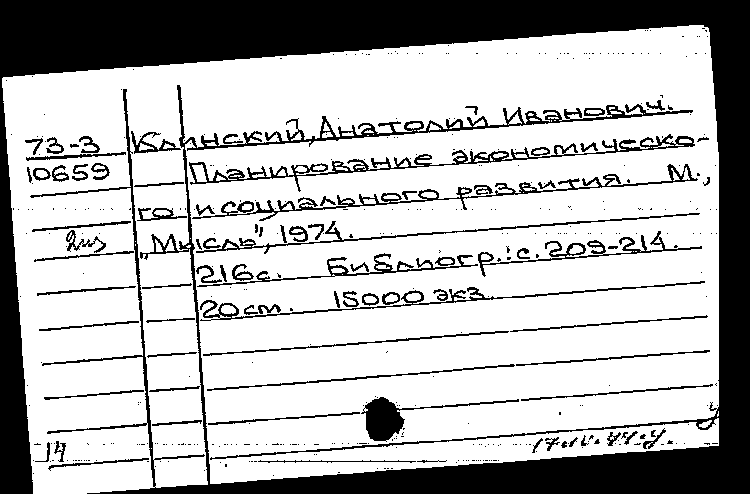 73-3 Клинский, Анатолий Иванович.
10659 Планирование экономическо-
го и социального развития. М.,
„Мысль", 1974.
216 с. Библиогр.: с. 209-214.
20 cm. 15000 экз.
14